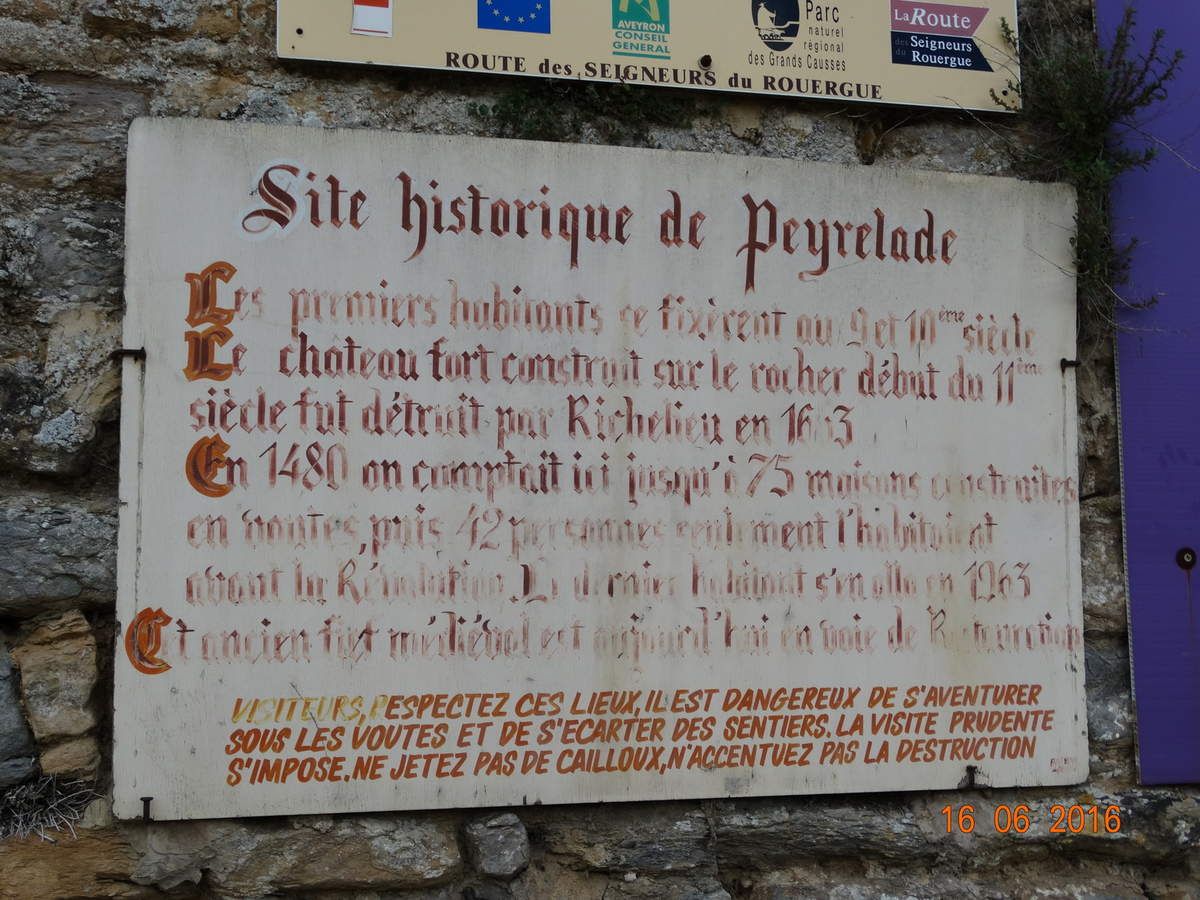 AVEYRON
CONSEIL
GENERAL
Parc
naturel
régional
des Grands Causses
La Route
des Seigneurs
du Rouergue
ROUTE des SEIGNEURS du ROUERGUE
Site historique de Peyrelade
Les premiers habitants se fixèrent au 9 et 10ème siècle
Le château fort construit sur le rocher début du 11ème
siècle fut détruit par Richelieu en 1633
En 1480 on comptait ici jusqu'à 75 maisons construites
en voutes, puis 42 personnes seulement l'habitaient
avant la Révolution. Le dernier habitant s'en alla en 1963
Cet ancien fief médiéval est aujourd'hui en voie de Restauration
VISITEURS, RESPECTEZ CES LIEUX, IL EST DANGEREUX DE S'AVENTURER
SOUS LES VOUTES ET DE S'ECARTER DES SENTIERS. LA VISITE PRUDENTE
S'IMPOSE. NE JETEZ PAS DE CAILLOUX, N'ACCENTUEZ PAS LA DESTRUCTION
16 06 2016